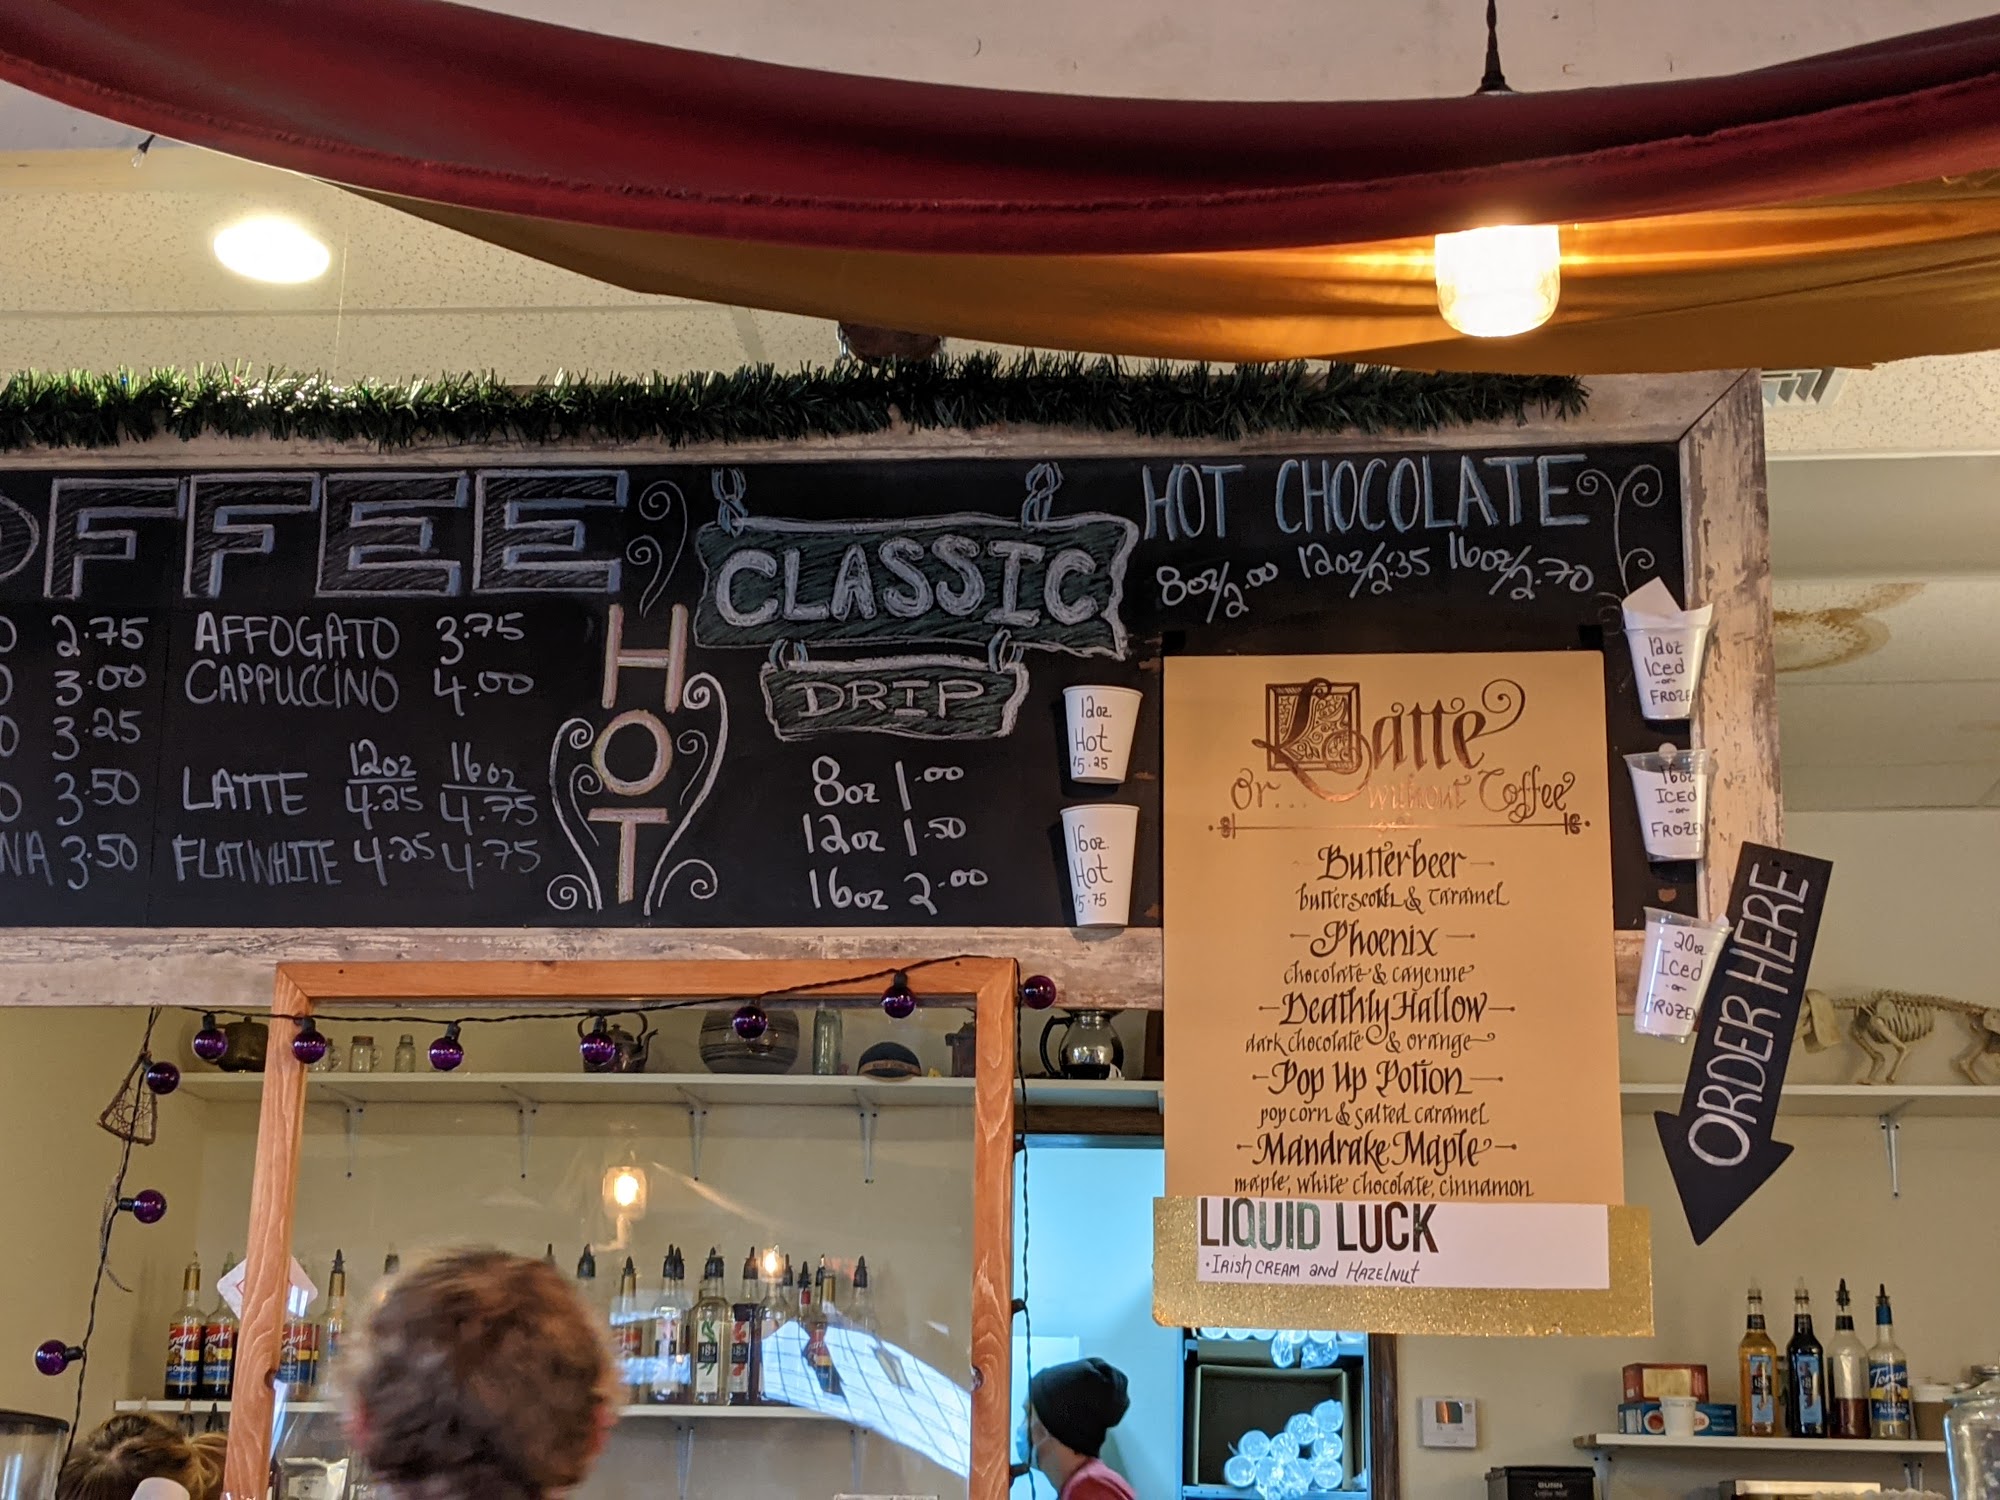 OFFEE
2.75
3.00
3.25
3.50
NA 3.50
AFFOGATO 3.75
CAPPUCCINO 4.00
12oz 16oz
LATTE 4.25 4.75
FLATWHITE 4.25 4.75
HOT
CLASSIC
DRIP
8oz 1.00
12oz 1.50
16oz 2.00
HOT CHOCOLATE
8oz/2.00 12oz/2.35 16oz/2.70
12oz.
Hot
5.25
16oz.
Hot
5.75
Latte
Or... without Coffee
Butterbeer
butterscotch & caramel
Phoenix
chocolate & cayenne
Deathly Hallow
dark chocolate & orange
Pop Up Potion
popcorn & salted caramel
Mandrake Maple
maple, white chocolate, cinnamon
LIQUID LUCK
• IRISH CREAM and HAZELNUT
12oz
Iced
-or-
FROZEN
16oz
ICED
-or-
FROZEN
20oz
Iced
-or-
FROZEN
ORDER HERE
Torani
BUNN